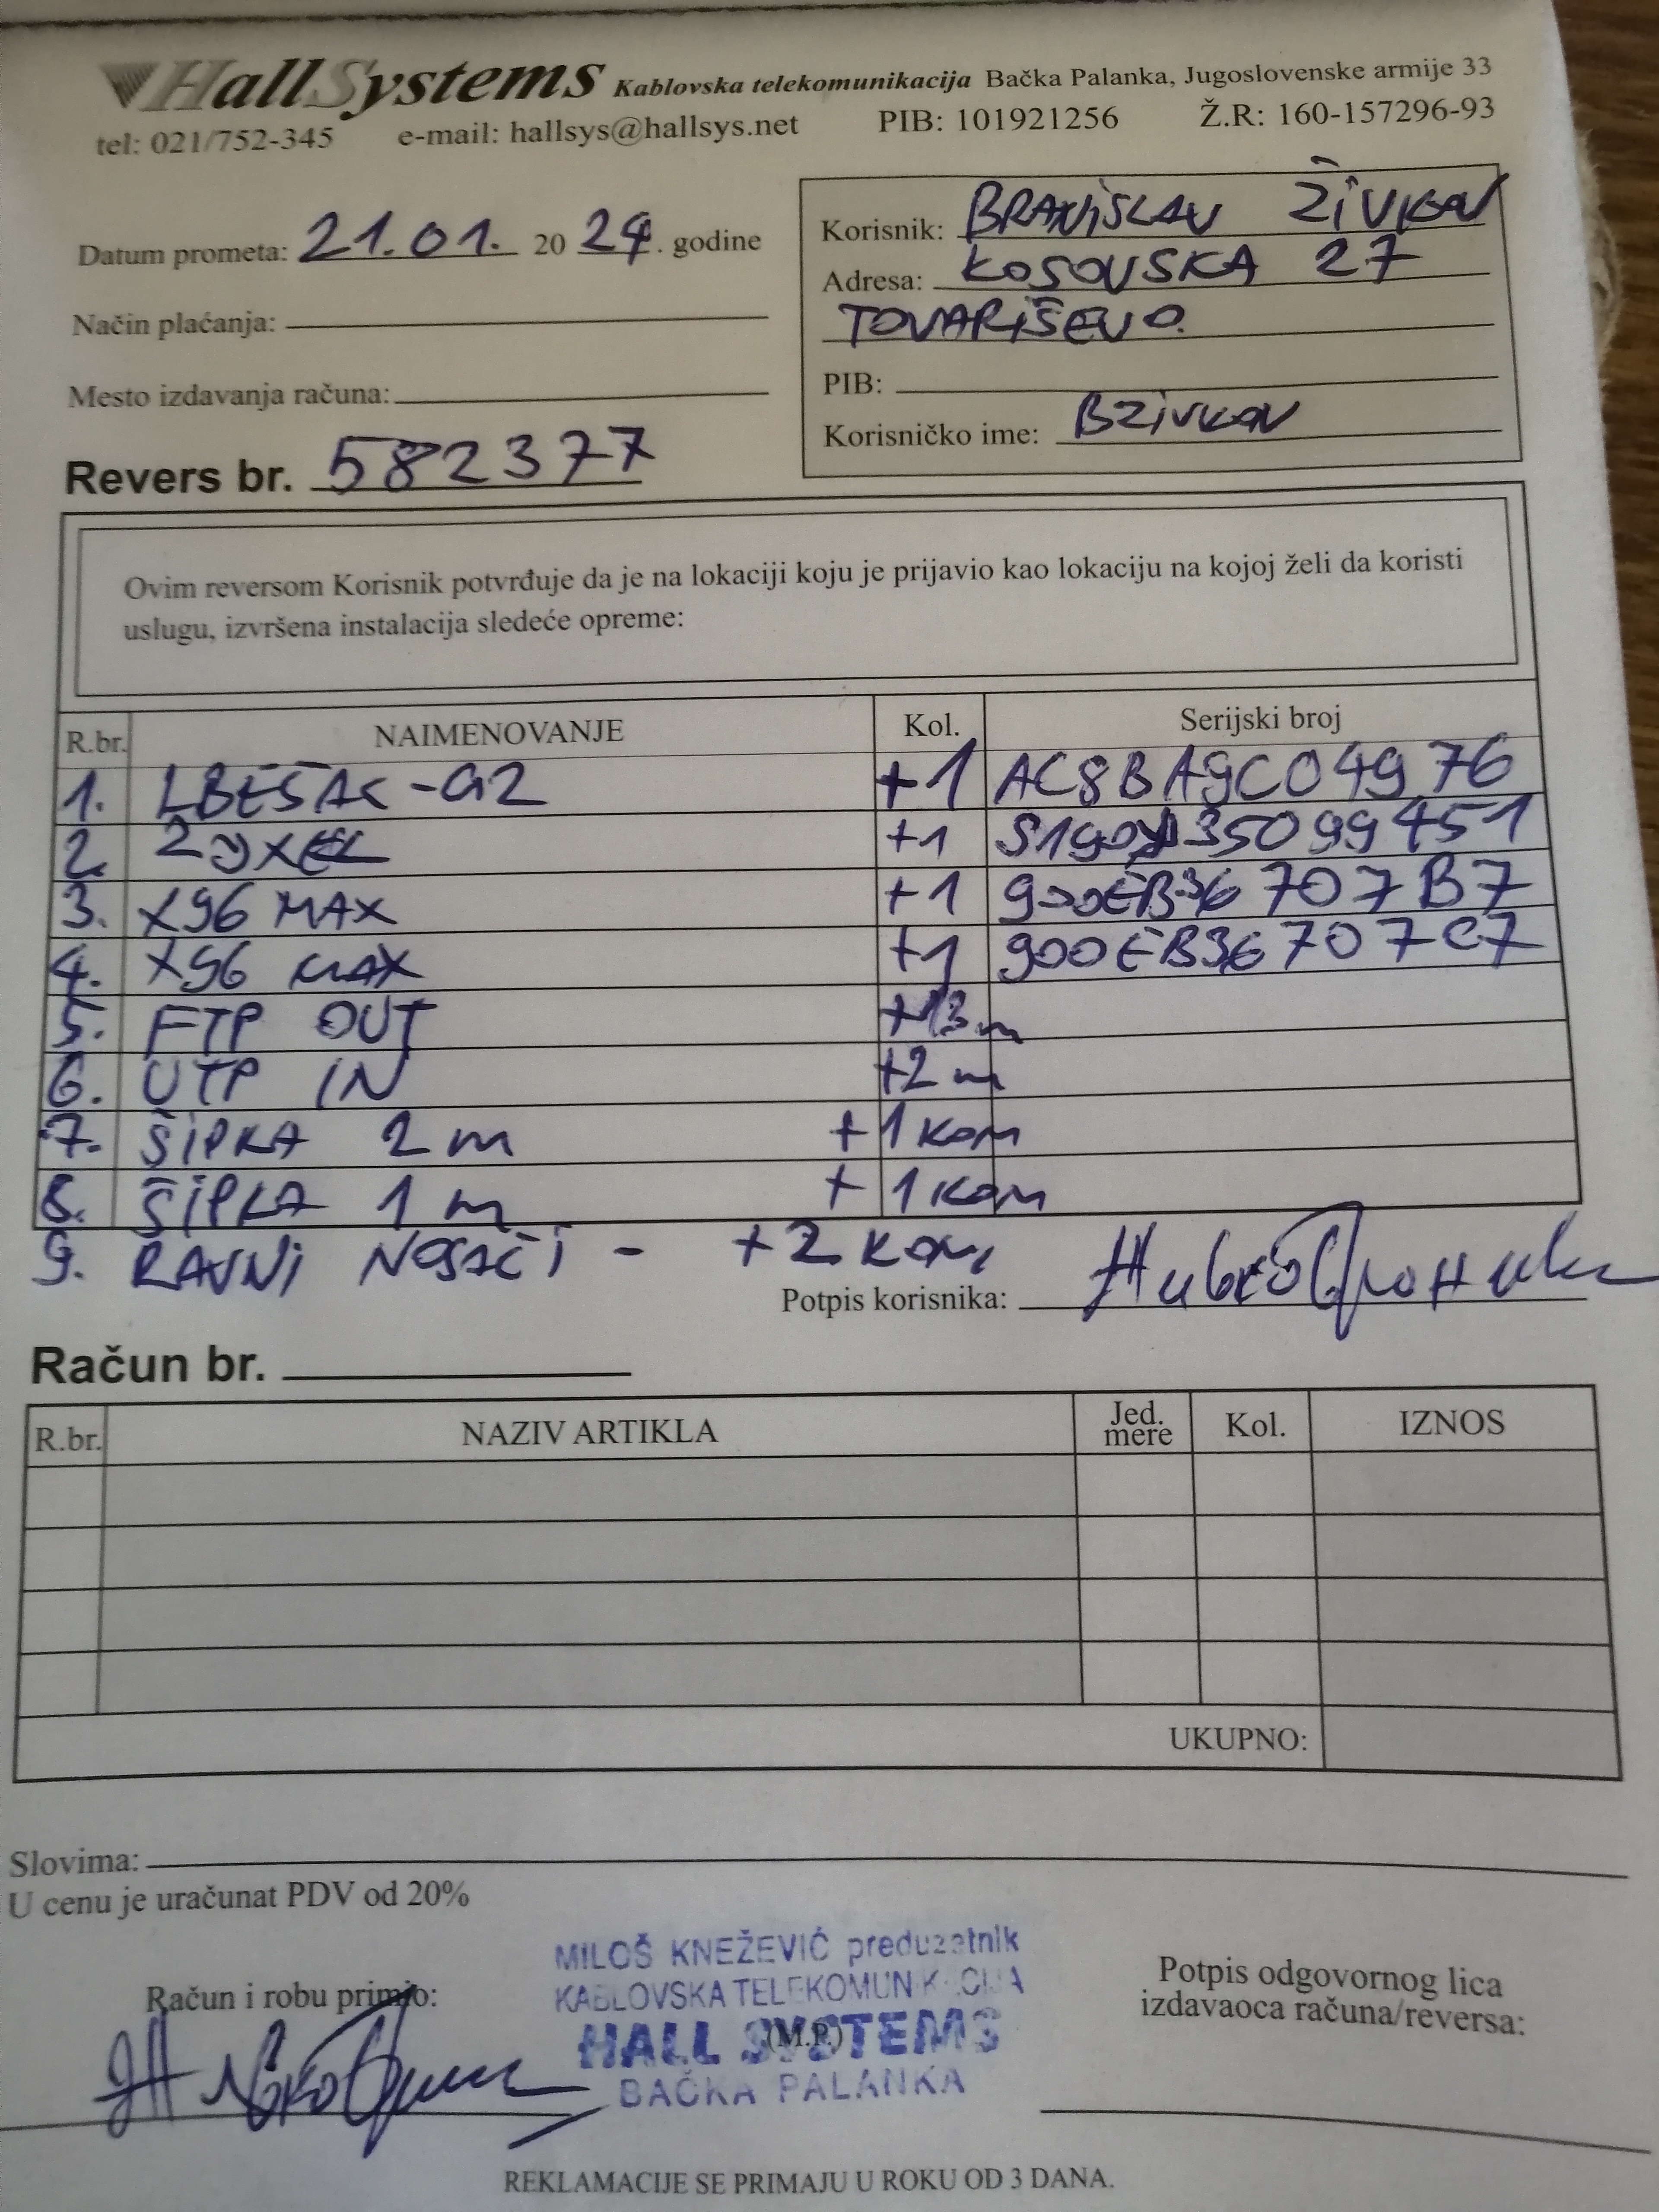 HallSystems Kablovska telekomunikacija Bačka Palanka, Jugoslovenske armije 33
tel: 021/752-345 e-mail: hallsys@hallsys.net PIB: 101921256 Ž.R: 160-157296-93
Datum prometa: 21.01. 2024. godine
Način plaćanja:
Mesto izdavanja računa:
Korisnik: BRANiSLAV ŽiVKOV
Adresa: KOSOVSKA 27
TOVARiŠEVO.
PIB:
Korisničko ime: BZiVKOV
Revers br. 582377
Ovim reversom Korisnik potvrđuje da je na lokaciji koju je prijavio kao lokaciju na kojoj želi da koristi
uslugu, izvršena instalacija sledeće opreme:
R.br. NAIMENOVANJE Kol. Serijski broj
1. LBE5AC-G2 +1 AC8BA9C04976
2. ZYXEL +1
3. X96 MAX +1 900EB36707B7
4. X96 MAX +1 900EB36707C7
5. FTP OUT +13m
6. UTP IN +2m
7. ŠiPKA 2m +1 KOM
8. ŠiPKA 1m +1 KOM
9. RAVNi NOSAČi - +2 KOM
Potpis korisnika:
Račun br.
R.br. NAZIV ARTIKLA Jed. mere Kol. IZNOS
UKUPNO:
Slovima:
U cenu je uračunat PDV od 20%
Račun i robu primio:
MILOŠ KNEŽEVIĆ preduzetnik
KABLOVSKA TELEKOMUNIKACIJA
(M.P.)
HALL SYSTEMS
BAČKA PALANKA
Potpis odgovornog lica
izdavaoca računa/reversa:
REKLAMACIJE SE PRIMAJU U ROKU OD 3 DANA.